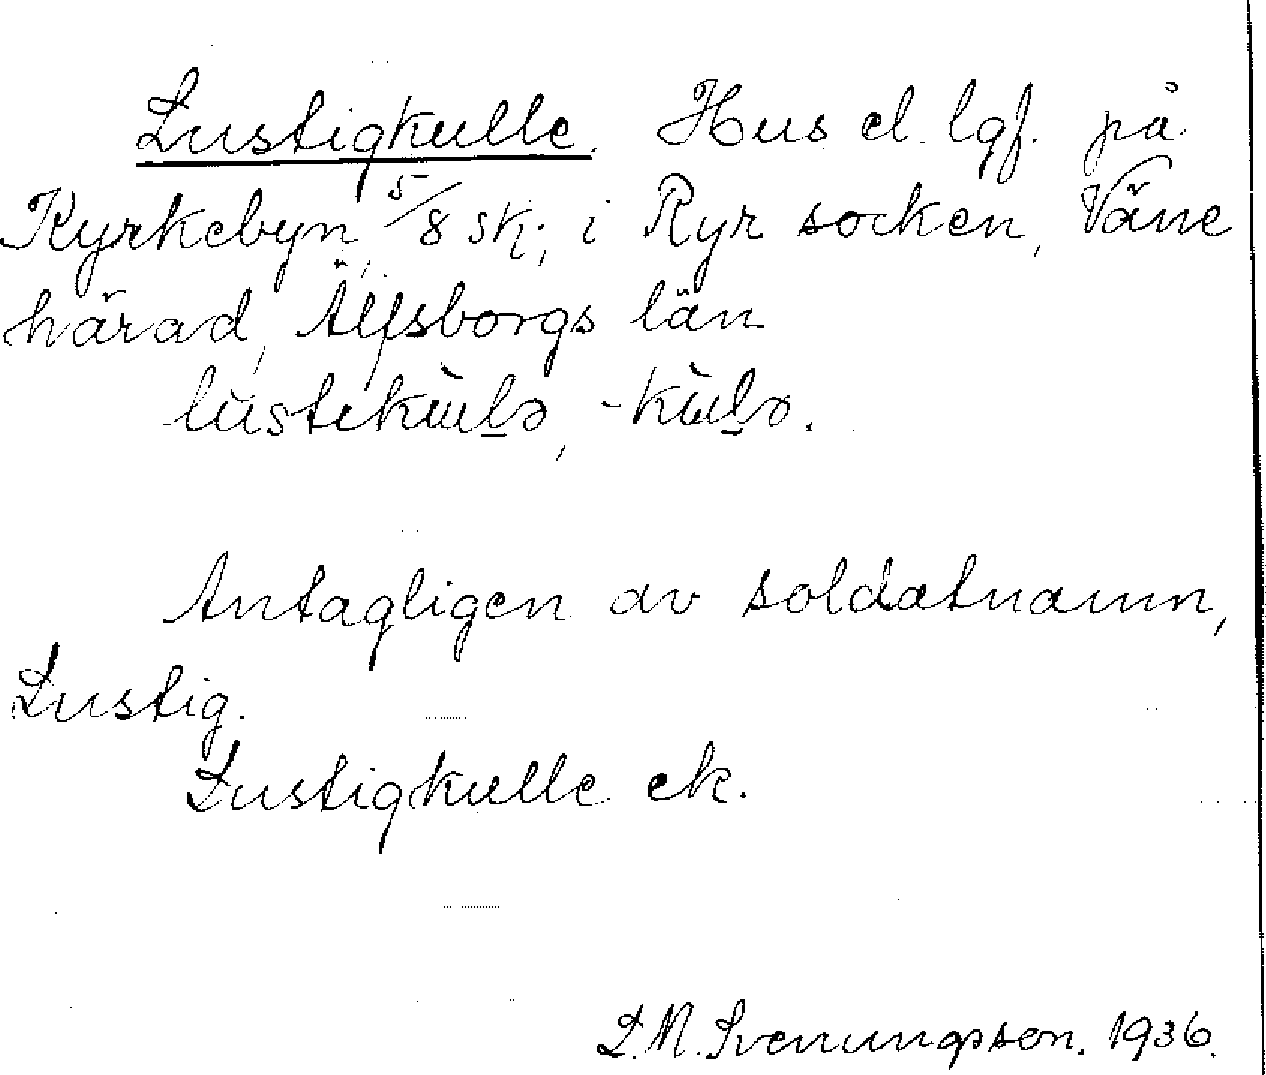 Lustigkulle. Hus el. lgf. på
Kyrkebyn, 5/8 sk., i Ryr socken, Väne
härad, Älfsborgs län
lùstekùlə, -kùlə.
Antagligen av soldatnamn,
Lustig.
Lustigkulle ek.
L.M. Svenungsson. 1936.